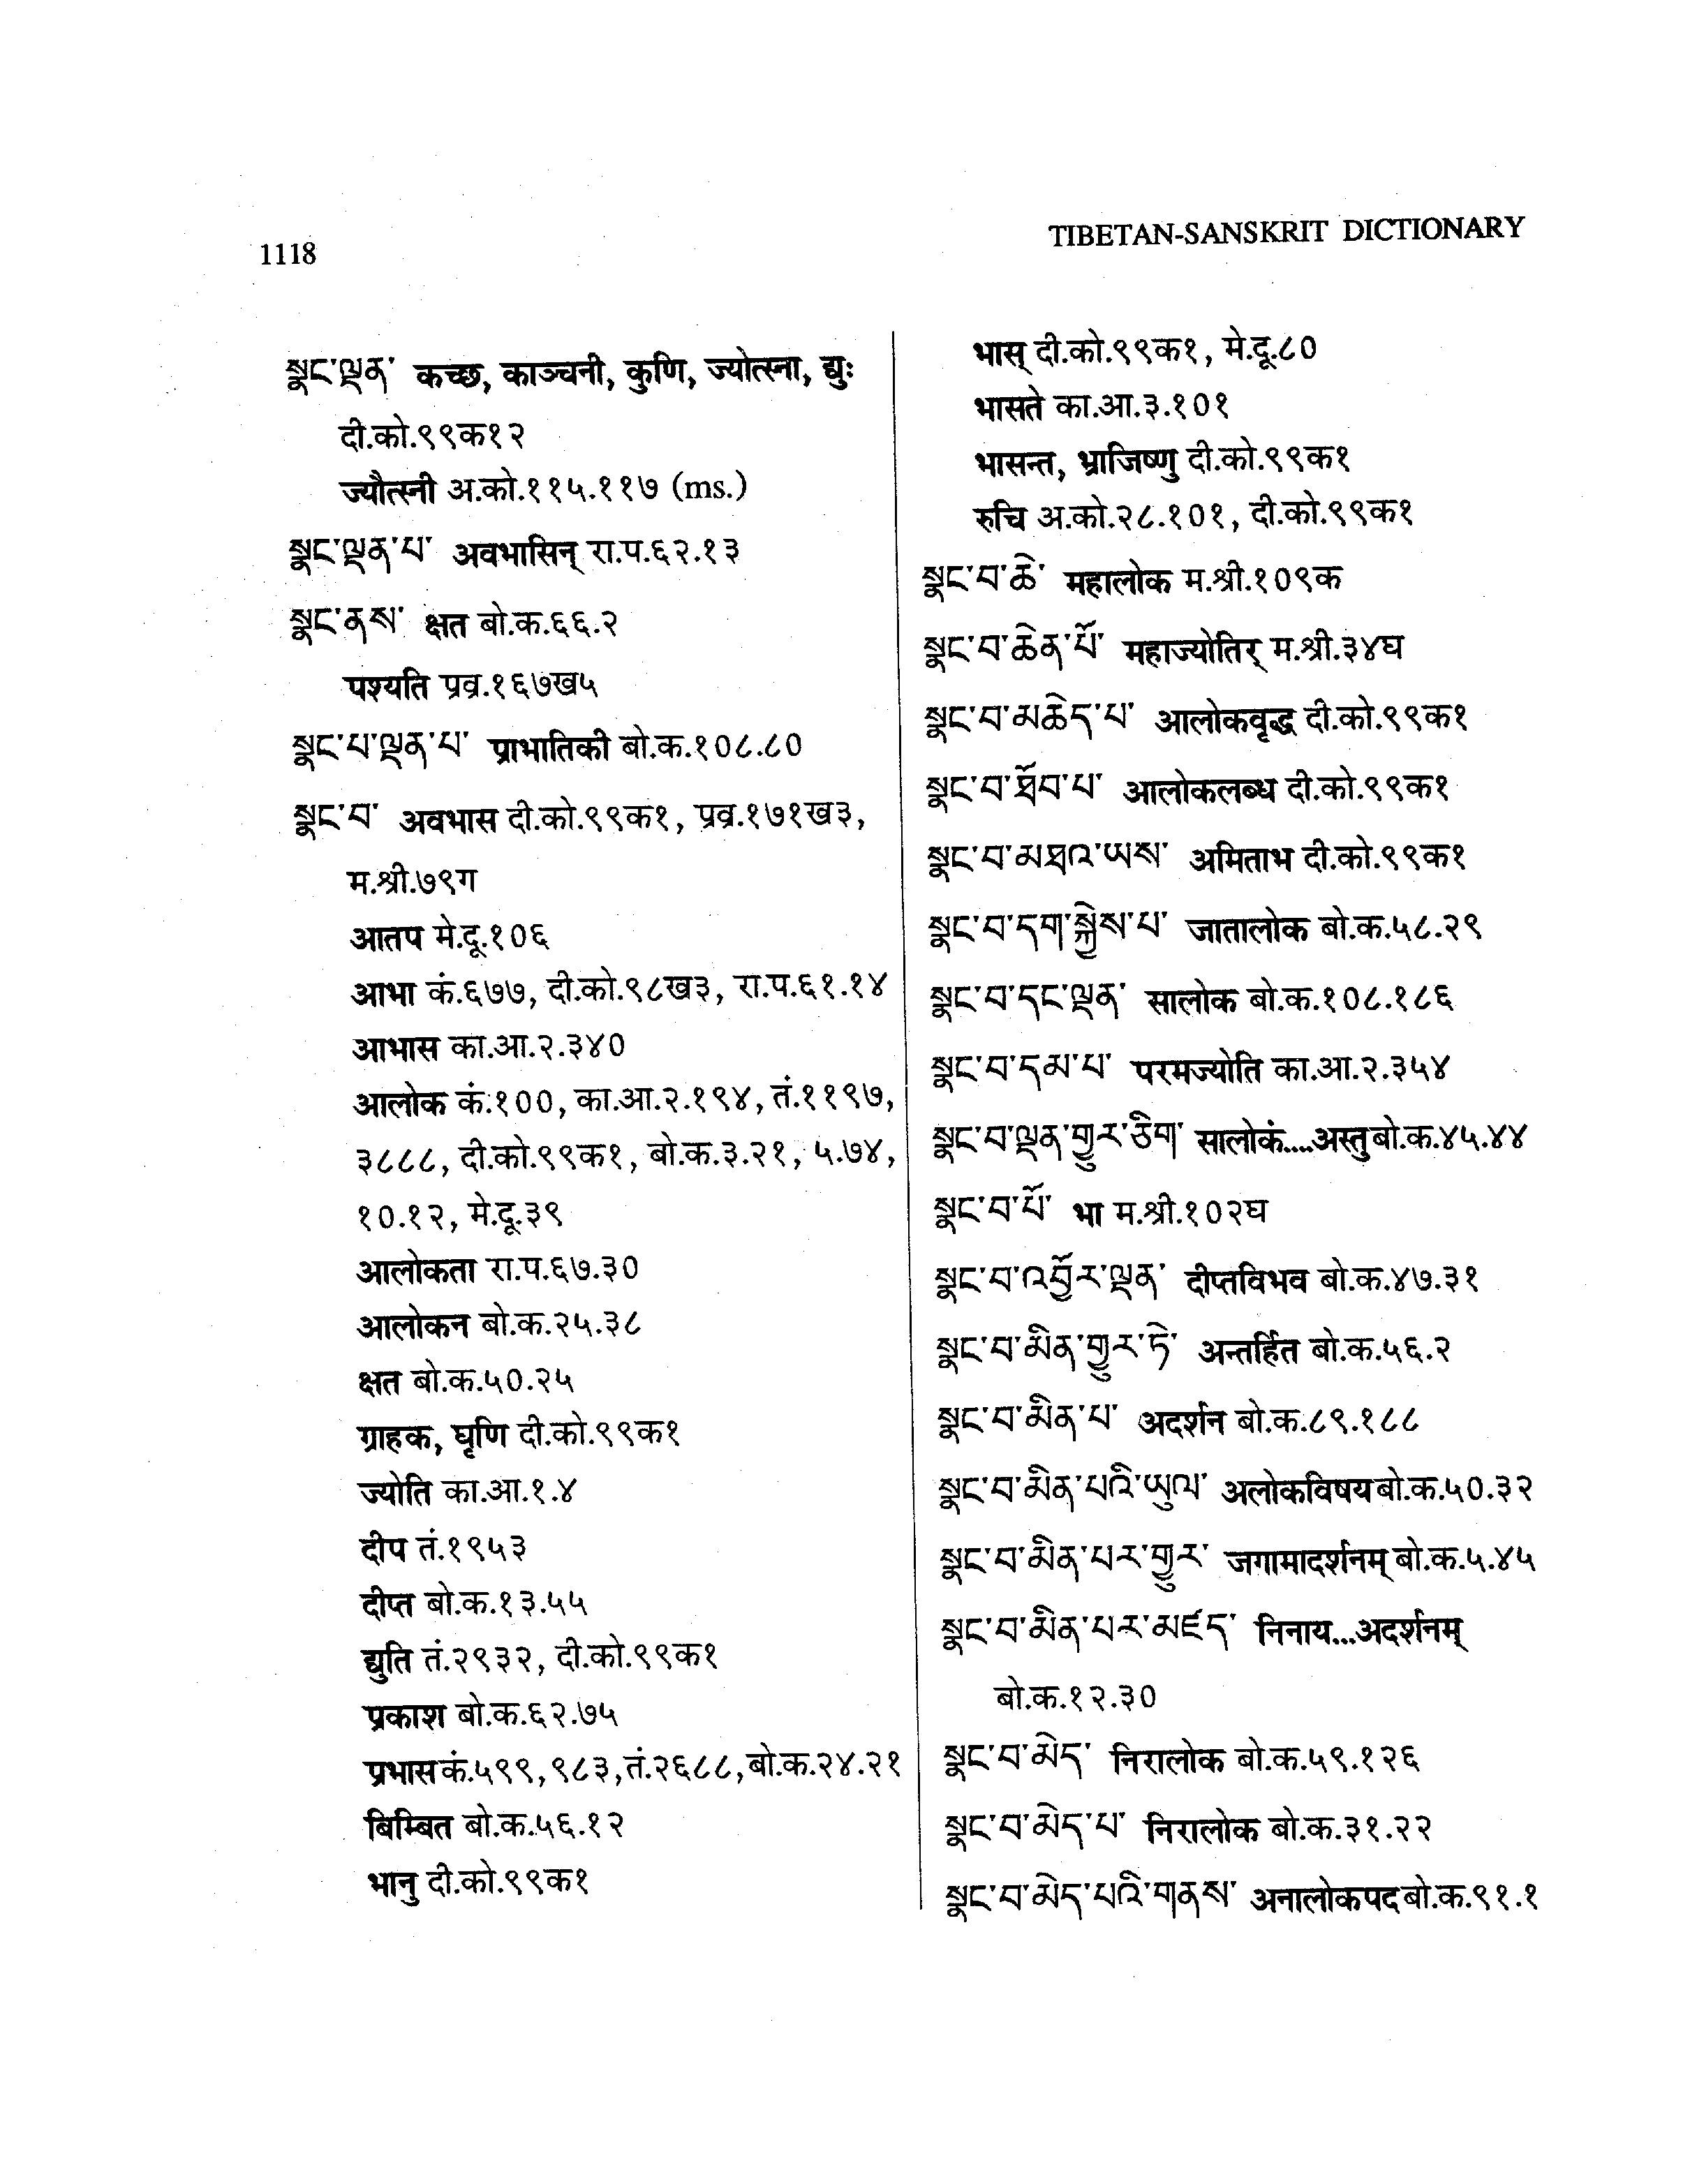 1118
TIBETAN-SANSKRIT DICTIONARY
སྣང་ལྡན་ कच्छ, काञ्चनी, कुणि, ज्योत्स्ना, द्युः
दी.को.९९क१२
ज्यौत्स्नी अ.को.११५.११७ (ms.)
སྣང་ལྡན་པ་ अवभासिन् रा.प.६२.१३
སྣང་ནས་ क्षत बो.क.६६.२
पश्यति प्रव्र.१६७ख५
སྣང་པ་ལྡན་པ་ प्राभातिकी बो.क.१०८.८०
སྣང་བ་ अवभास दी.को.९९क१, प्रव्र.१७१ख३,
म.श्री.७९ग
आतप मे.दू.१०६
आभा कं.६७७, दी.को.९८ख३, रा.प.६१.१४
आभास का.आ.२.३४०
आलोक कं.१००, का.आ.२.१९४, तं.११९७,
३८८८, दी.को.९९क१, बो.क.३.२१, ५.७४,
१०.१२, मे.दू.३९
आलोकता रा.प.६७.३०
आलोकन बो.क.२५.३८
क्षत बो.क.५०.२५
ग्राहक, घृणि दी.को.९९क१
ज्योति का.आ.१.४
दीप तं.१९५३
दीप्त बो.क.१३.५५
द्युति तं.२९३२, दी.को.९९क१
प्रकाश बो.क.६२.७५
प्रभास कं.५९९, ९८३, तं.२६८८, बो.क.२४.२१
बिम्बित बो.क.५६.१२
भानु दी.को.९९क१
भास् दी.को.९९क१, मे.दू.८०
भासते का.आ.३.१०१
भासन्त, भ्राजिष्णु दी.को.९९क१
रुचि अ.को.२८.१०१, दी.को.९९क१
སྣང་བ་ཆེ་ महालोक म.श्री.१०९क
སྣང་བ་ཆེན་པོ་ महाज्योतिर् म.श्री.३४घ
སྣང་བ་མཆེད་པ་ आलोकवृद्ध दी.को.९९क१
སྣང་བ་ཐོབ་པ་ आलोकलब्ध दी.को.९९क१
སྣང་བ་མཐའ་ཡས་ अमिताभ दी.को.९९क१
སྣང་བ་དག་སྐྱེས་པ་ जातालोक बो.क.५८.२९
སྣང་བ་དང་ལྡན་ सालोक बो.क.१०८.१८६
སྣང་བ་དམ་པ་ परमज्योति का.आ.२.३५४
སྣང་བ་ལྡན་གྱུར་ཅིག་ सालोकं....अस्तु बो.क.४५.४४
སྣང་བ་པོ་ भा म.श्री.१०२घ
སྣང་བ་འབྱོར་ལྡན་ दीप्तविभव बो.क.४७.३१
སྣང་བ་མིན་གྱུར་ཏེ་ अन्तर्हित बो.क.५६.२
སྣང་བ་མིན་པ་ अदर्शन बो.क.८९.१८८
སྣང་བ་མིན་པའི་ཡུལ་ अलोकविषय बो.क.५०.३२
སྣང་བ་མིན་པར་གྱུར་ जगामादर्शनम् बो.क.५.४५
སྣང་བ་མིན་པར་མཛད་ निनाय...अदर्शनम्
बो.क.१२.३०
སྣང་བ་མེད་ निरालोक बो.क.५९.१२६
སྣང་བ་མེད་པ་ निरालोक बो.क.३१.२२
སྣང་བ་མེད་པའི་གནས་ अनालोकपद बो.क.९१.१